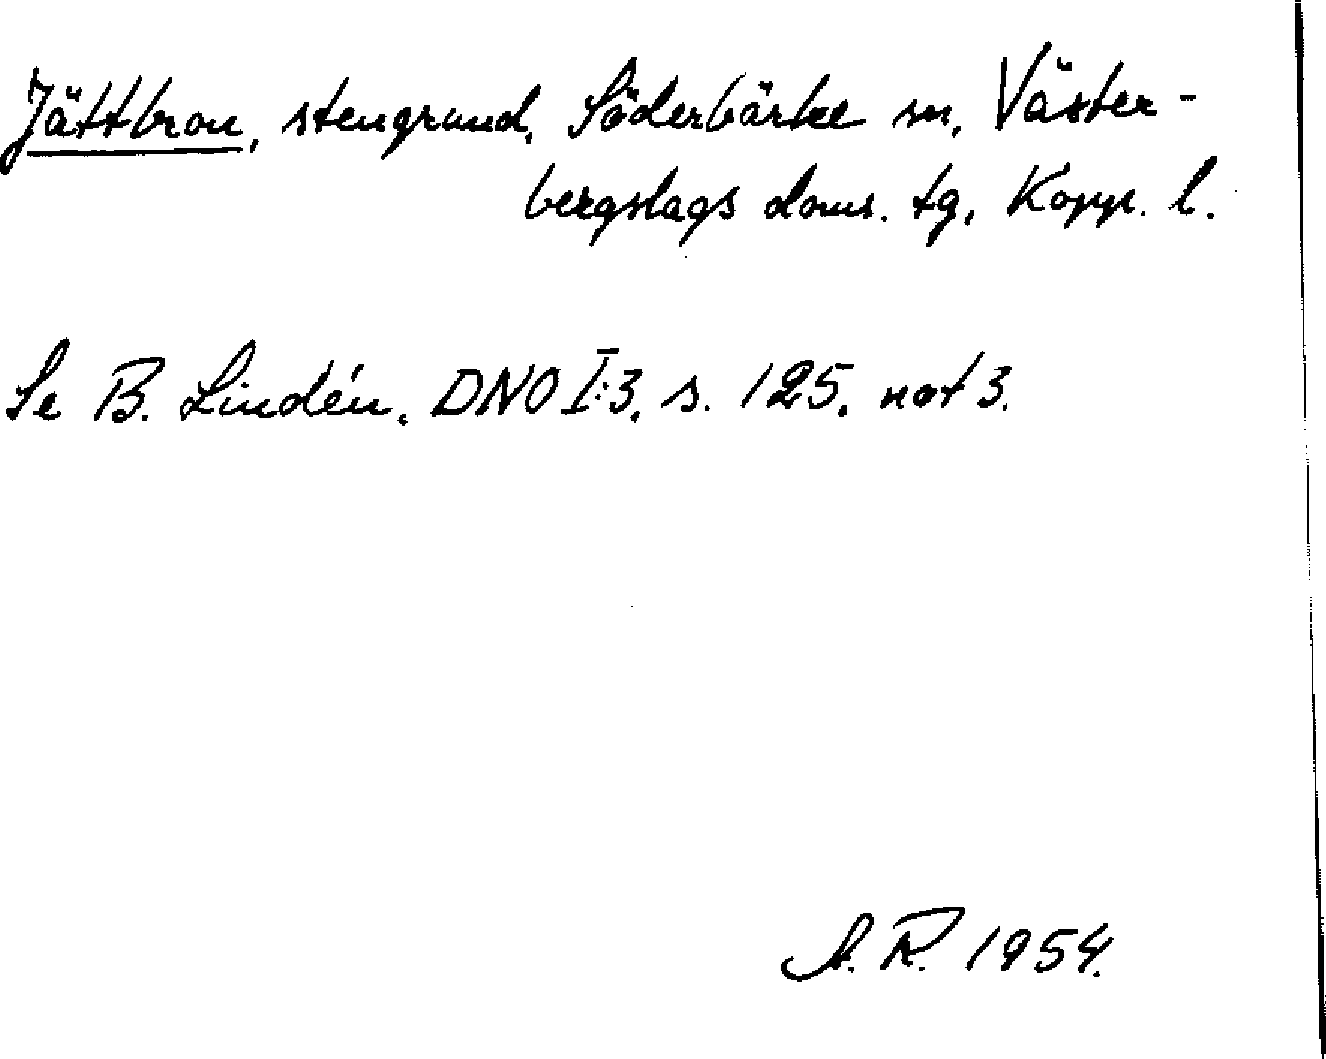 Jättbron, stengrund, Söderbärke sn, Väster-
bergslags doms. tg, Kopp. l.
Se B. Lindén, DNO I:3, s. 125, not 3.
A. R. 1954.